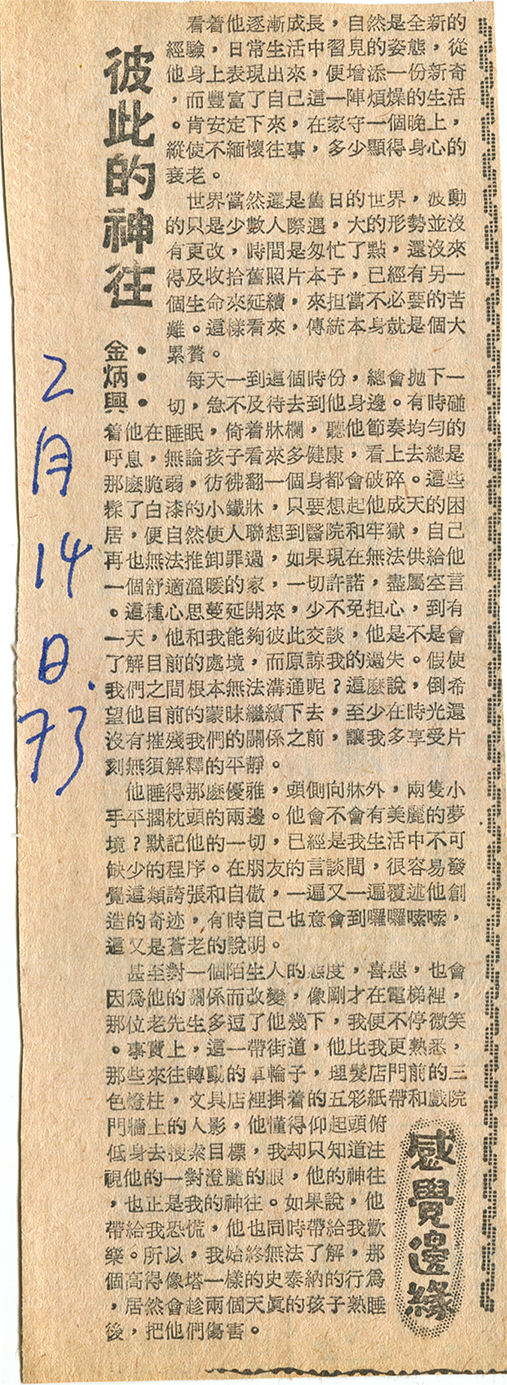 彼此的神往
金炳興
看着他逐漸成長,自然是全新的
經驗,日常生活中習見的姿態,從
他身上表現出來,便增添一份新奇
,而豐富了自己這一陣煩燥的生活
。肯安定下來,在家守一個晚上,
縱使不緬懷往事,多少顯得身心的
衰老。
世界當然還是舊日的世界,波動
的只是少數人際遇,大的形勢並沒
有更改,時間是匆忙了點,還沒來
得及收拾舊照片本子,已經有另一
個生命來延續,來担當不必要的苦
難。這樣看來,傳統本身就是個大
累贅。
每天一到這個時份,總會拋下一
切,急不及待去到他身邊。有時碰
着他在睡眠,倚着牀欄,聽他節奏均勻的
呼息,無論孩子看來多健康,看上去總是
那麼脆弱,彷彿翻一個身都會破碎。這些
髹了白漆的小鐵牀,只要想起他成天的困
居,便自然使人聯想到醫院和牢獄,自己
再也無法推卸罪過,如果現在無法供給他
一個舒適溫暖的家,一切許諾,盡屬空言
。這種心思蔓延開來,少不免担心,到有
一天,他和我能夠彼此交談,他是不是會
了解目前的處境,而原諒我的過失。假使
我們之間根本無法溝通呢?這麼說,倒希
望他目前的蒙昧繼續下去,至少在時光還
沒有摧殘我們的關係之前,讓我多享受片
刻無須解釋的平靜。
他睡得那麼優雅,頭側向牀外,兩隻小
手平擱枕頭的兩邊。他會不會有美麗的夢
境?默記他的一切,已經是我生活中不可
缺少的程序。在朋友的言談間,很容易發
覺這類誇張和自傲,一遍又一遍覆述他創
造的奇迹,有時自己也意會到囉囉嗦嗦,
這又是蒼老的說明。
甚至對一個陌生人的態度,喜惡,也會
因爲他的關係而改變,像剛才在電梯裡,
那位老先生多逗了他幾下,我便不停微笑
。事實上,這一帶街道,他比我更熟悉,
那些來往轉動的車輪子,理髮店門前的三
色燈柱,文具店裡掛着的五彩紙帶和戲院
門牆上的人影,他懂得仰起頭俯
低身去搜索目標,我却只知道注
視他的一對澄麗的眼,他的神往
,也正是我的神往。如果說,他
帶給我恐慌,他也同時帶給我歡
樂。所以,我始終無法了解,那
個高得像塔一樣的史泰納的行爲
,居然會趁兩個天眞的孩子熟睡
後,把他們傷害。
感覺邊緣
2月14日.73